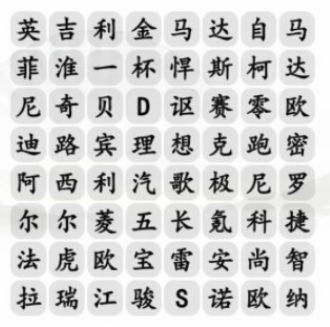 英吉利金马达自马
菲淮一杯悍斯柯达
尼奇贝D讴赛零欧
迪路宾理想克跑密
阿西利汽歌极尼罗
尔尔菱五长氪科捷
法虎欧宝雷安尚智
拉瑞江骏S诺欧纳